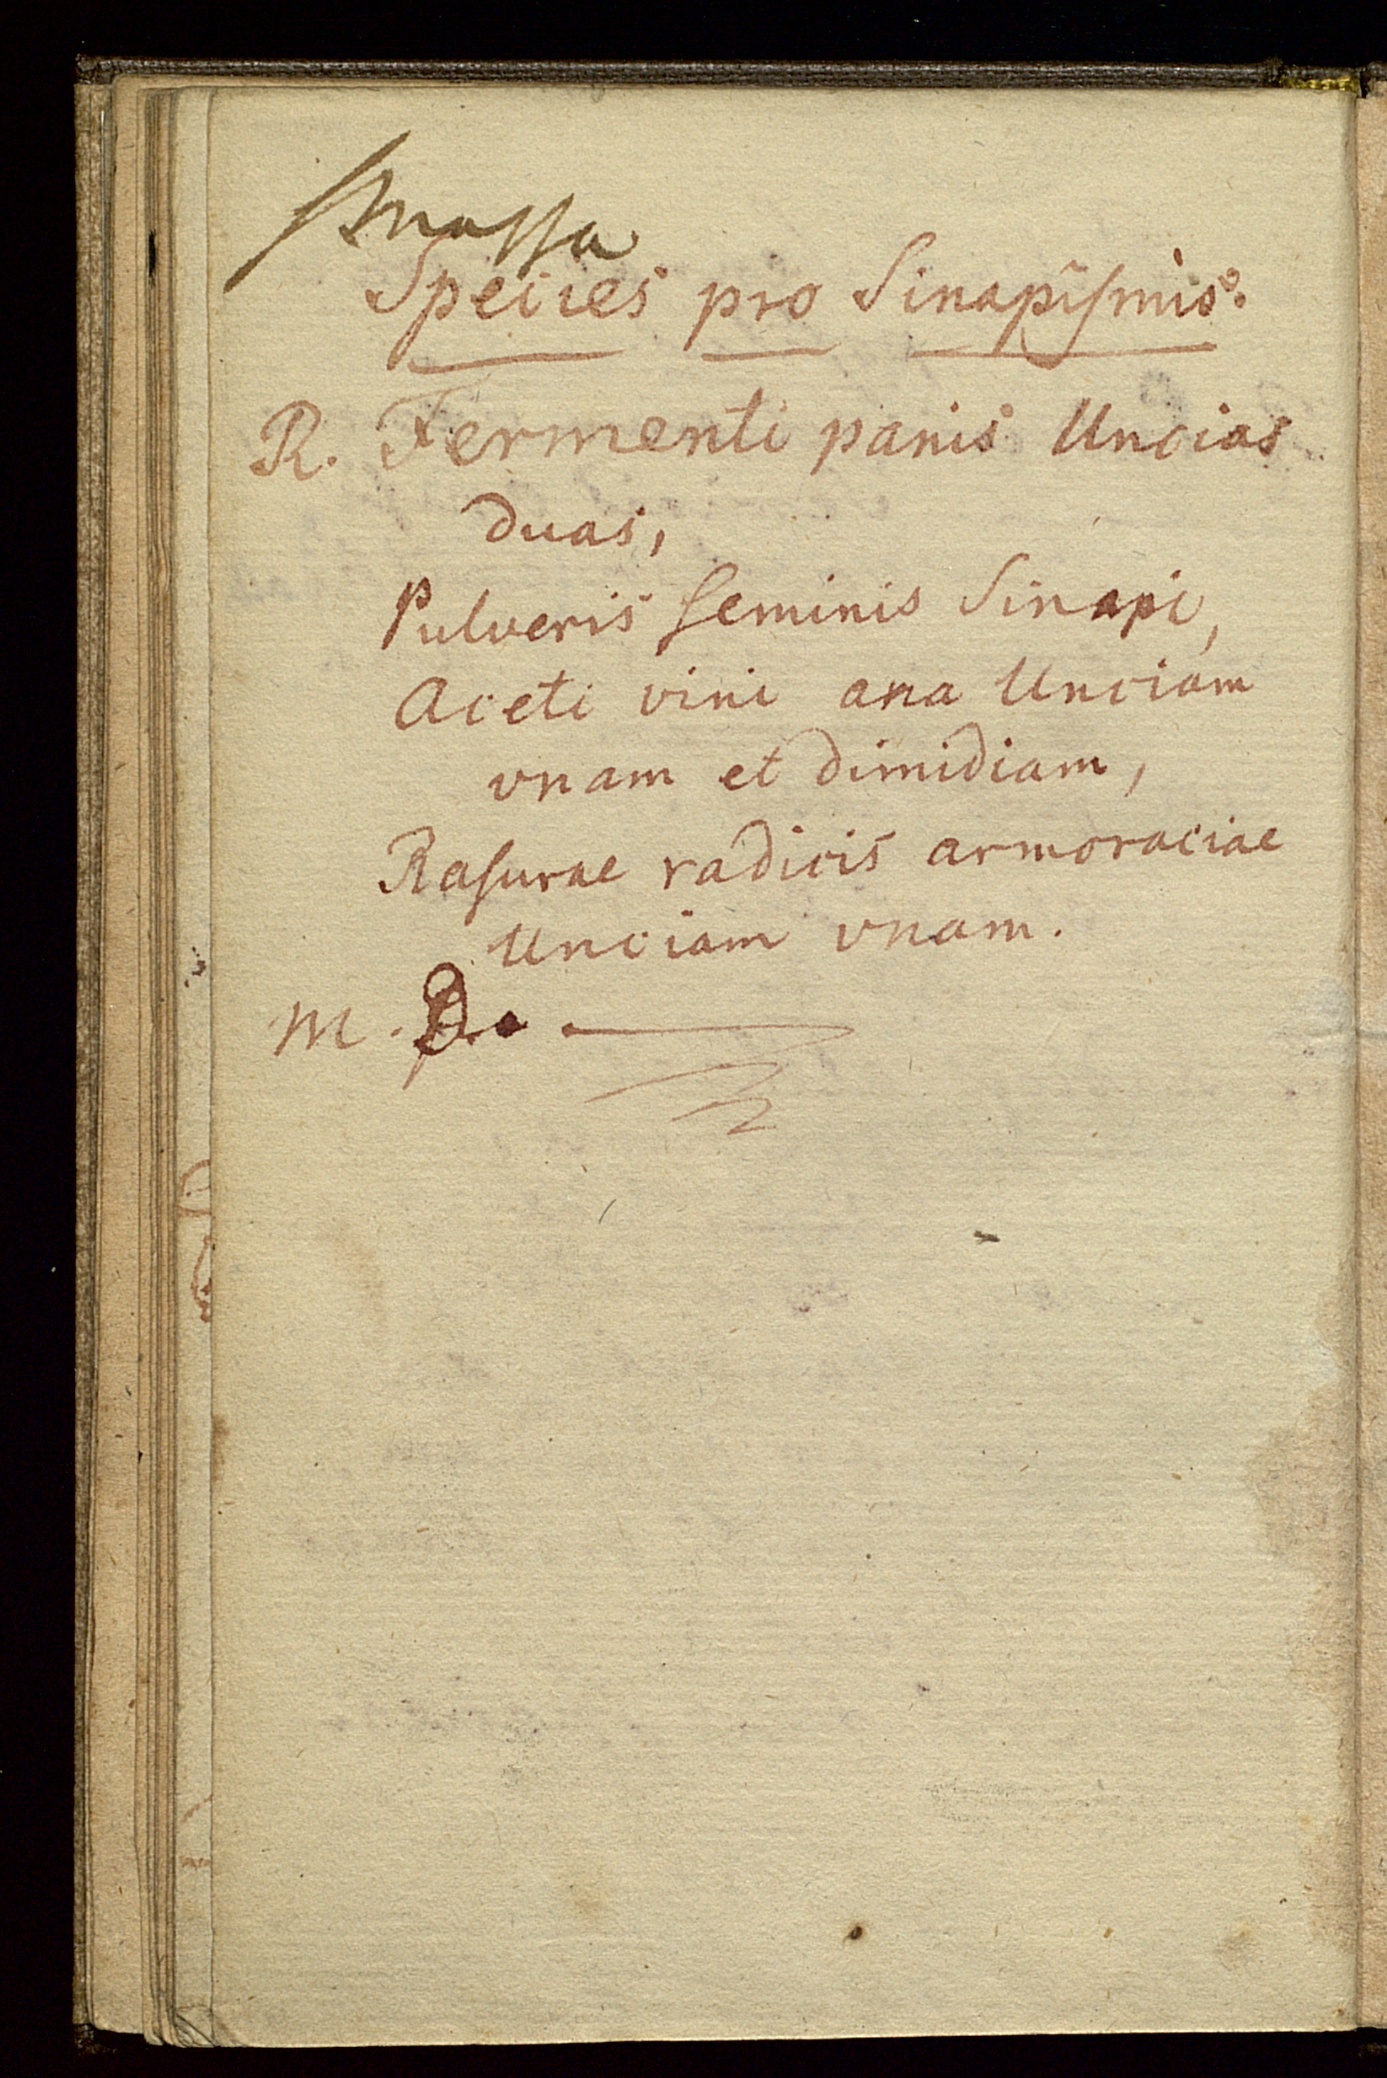 Massa
Species pro Sinapismis.
R. Fermenti panis Uncias
duas,
Pulveris seminis Sinapi,
Aceti vini ana Unciam
vnam et dimidiam,
Rasurae radicis armoraciae
Unciam vnam.
M. D.